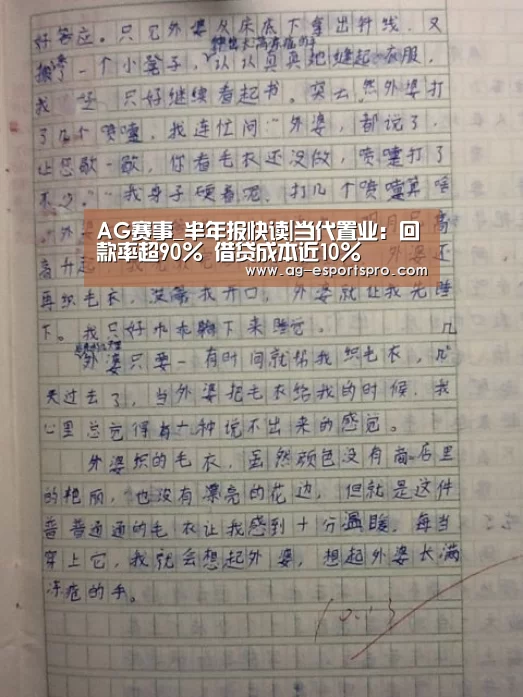 好答应。只见外婆从床底下拿出针线，又
伸出长满冻疮的手
搬了一个小凳子，认认真真地缝起衣服，
我 只好继续看起书。突然外婆打
了几个喷嚏，我连忙问：“外婆，都说了，
让您歇一歇，你看毛衣还没做，喷嚏打了
不少。”“我身子硬着呢，打几个喷嚏算啥
“外婆
AG赛事_半年报快读|当代置业：回
款率超90% 借贷成本近10%
www.ag-esportspro.com
高升起，外婆还
再织毛衣，没等我开口，外婆就让我先睡
下。我只好 下来睡觉。
外婆只要一有时间就帮我织毛衣，几
天过去了，当外婆把毛衣给我的时候，我
心里总觉得有一种说不出来的感觉。
外婆织的毛衣，虽然颜色没有商店里
的艳丽，也没有漂亮的花边，但就是这件
普普通通的毛衣让我感到十分温暖，每当
穿上它，我就会想起外婆，想起外婆长满
冻疮的手。
10.13